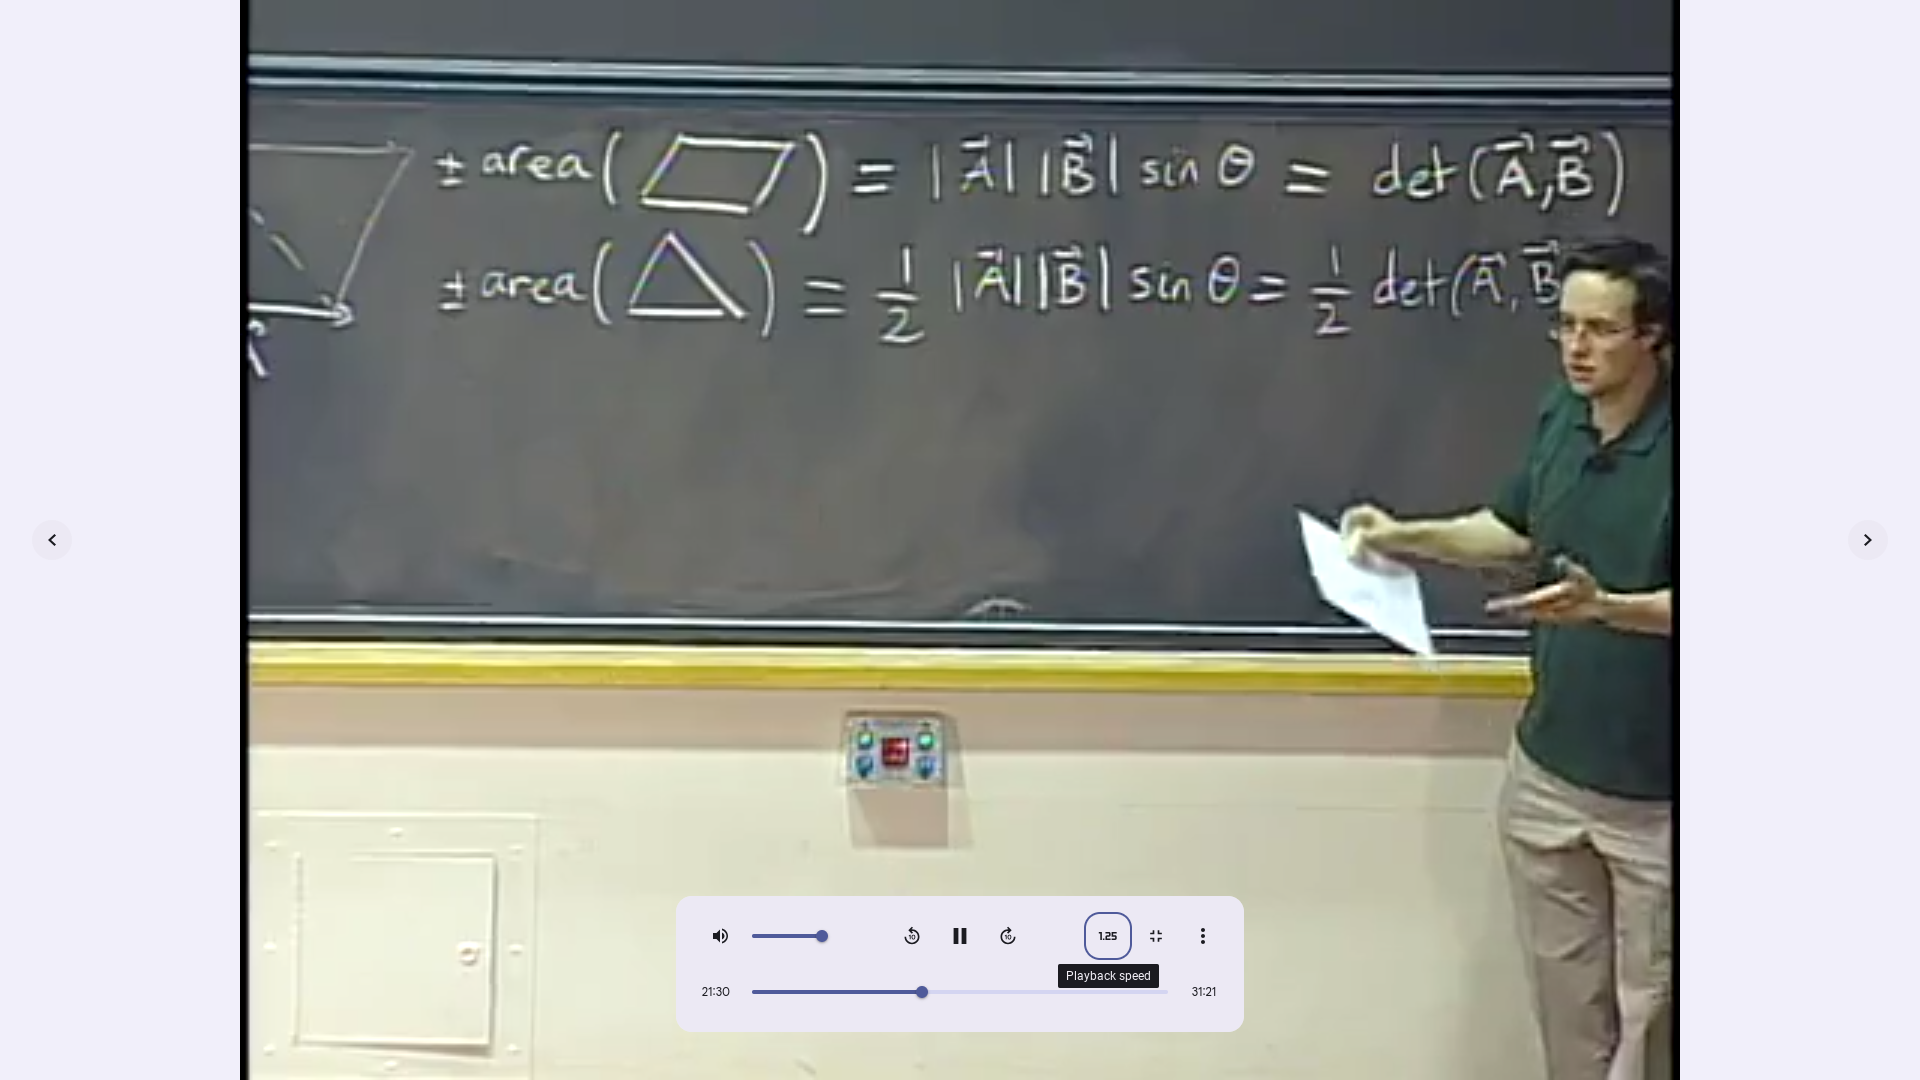 ± area(▱) = |A⃗| |B⃗| sin θ = det(A⃗,B⃗)
± area(△) = 1/2 |A⃗| |B⃗| sin θ = 1/2 det(A⃗, B⃗
10
10
1.25
Playback speed
21:30
31:21